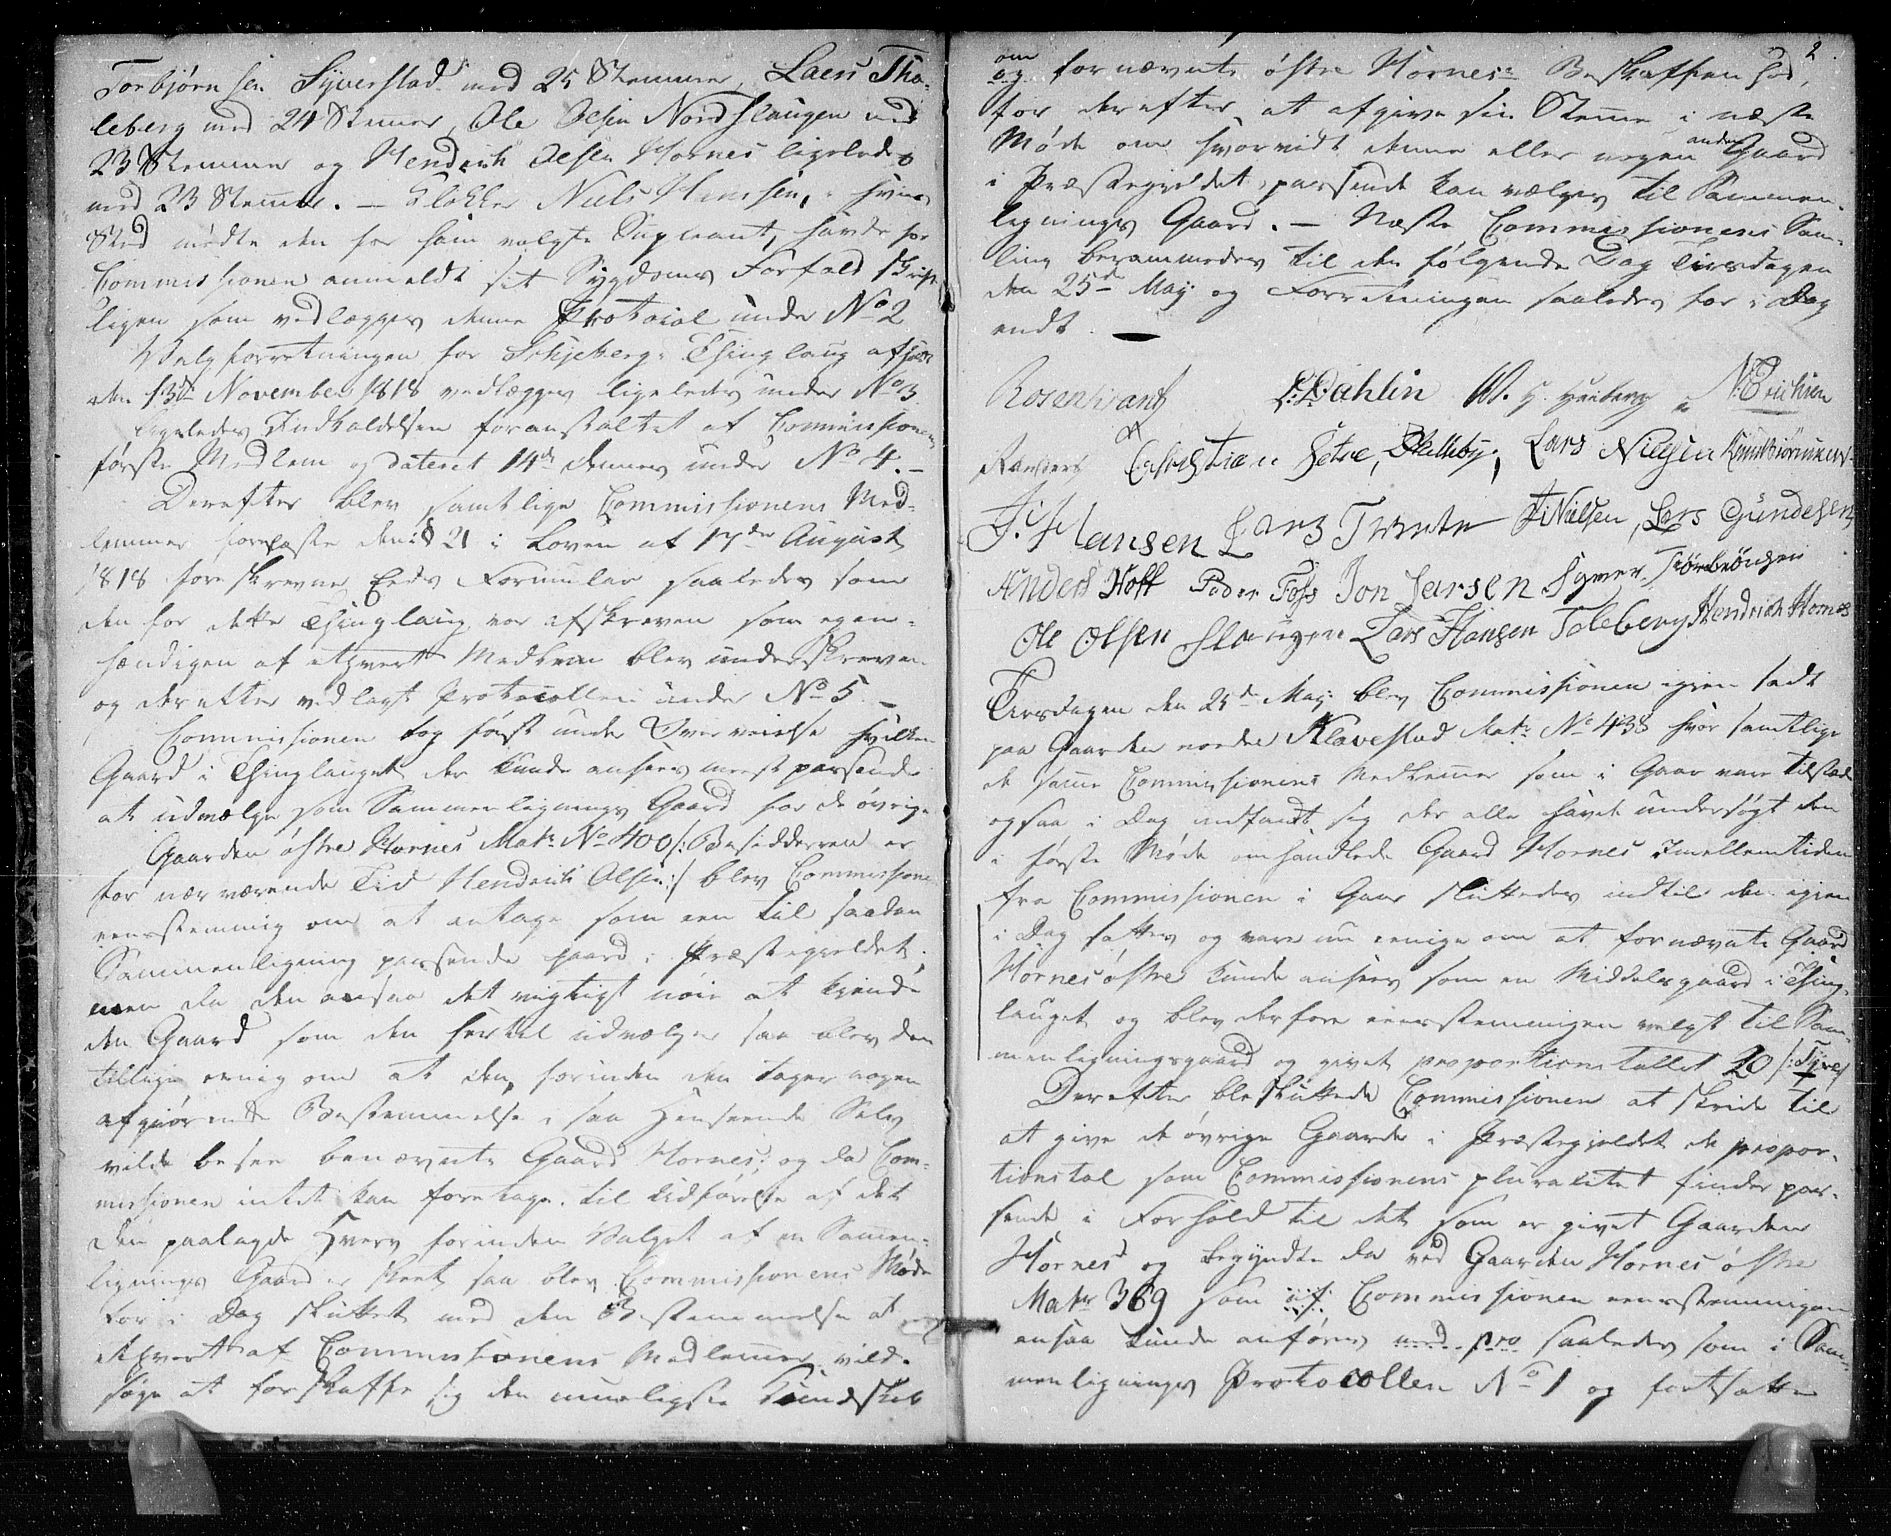 Torbjørnsen Syverstad med 25 Stemmer, Laers Tho-
leberg med 24 Stemer, Ole Olsen Nordslaugen med
23 Stemmer og Hendrich Olsen Hornes ligeledes
med 23 Stemmer. — Klokker Niels Hanssen, i hvis
Sted mødte den for ham valgte Supleant, havde for
Commissionen anmeldt sit Sygdoms Forfald skrift-
ligen som vedlægges denne Protocol under No 2
Valgforretningen for Schjeberg Thinglaug afholdt
den 13de November 1818 vedlægges ligeledes under No 3
Ligeledes Indkaldelsen foranstaltet af Commissionens
første Medlem og dateret 14de dennes under No 4. —
Derefter blev samtlige Commissionens Med-
lemmer forelæste den § 21 i Loven af 17de August
1818 foreskrevne Eeds Formular saaledes som
den for dette Thinglaug var afskreven som egen-
hændigen af ethvert Medlem blev underskreven
og derefter vedlagt Protocollen under No 5 —
Commissionen tog først under Overveielse hvilken
Gaard i Thinglauget der kunde ansees meest passende
at udvælge som Sammenlignings Gaard for de øvrige
Gaarden østre Hornes Matr. No 400 /: Besidderen er
for nærværende Tid Hendrich Olsen :/ blev Commissionen
eenstemmig om at antage som een til saadan
Sammenligning passende Gaard i Præstegieldet;
men da den ansaa det vigtigt nøie at kjende
den Gaard som den hertil udvælger saa blev den
tillige eenig om at den, forinden den tager nogen
afgiørende Bestemmelse i saa Henseende Selv
vilde besee benævnte Gaard Hornes; og da Com-
missionen intet kan foretage til Udførelse af det
den paalagde Hverv forinden Valget af en Samen-
lignings Gaard er skeet saa blev Commissionens Møde
for i Dag sluttet med den Bestemmelse at
ethvert af Commissionens Medlemer vilde
søge at forskaffe sig den mueligste Kundskab
2
om
og fornævnte østre Hornes Beskaffenhed,
for derefter at afgive sin Stemme i næste
Møde om hvorvidt denne eller nogen anden Gaard
i Præstegieldet passende kan vælges til Sammen-
lignings Gaard. — Næste Commissionens Sam-
ling berammedes til den følgende Dag Tirsdagen
den 25de May og Forretningen saaledes for i Dag
endt. —
Rosenkrantz Dahlin W. H. Heiberg N. Erichsen
Christian Setre, Skalleby, Lars Nielsen
J. Hansen Lars Tvete J. Nielsen, Lars Gundesen
Anders Hoff Peder Foss Jon Larsen Syver Torbrönsen
Ole Olsen Slaugen Lars Hansen Toleberg Hendrich Hornes
Tirsdagen den 25de May blev Commissionen igien sadt
paa Gaarden nordre Klavestad Matr. No 438 hvor samtlige
de samme Commissionens Medlemer som i Gaar vare tilstæde
ogsaa i Dag indfandt sig der alle havde undersøgt den
i første Møde omhandlede Gaard Hornes imellem tiden
fra Commissionen i Gaar sluttedes indtil den igien
i Dag sattes og vare nu eenige om at fornævnte Gaard
Hornes østre kunde ansees som en Middelsgaard i Thing-
lauget og blev derfore eenstemmigen valgt til Sam-
menligningsgaard og givet proportionstallet 20 /: Tyve :/
Derefter besluttede Commissionen at skride til
at give de øvrige Gaarde i Præstegieldet de propor-
tionstal som Commissionens pluralitet finder pas-
sende i Forhold til det som er givet Gaarden
Hornes og begyndte da ved Gaarden Hornes østre
Matr 369 som af Commissionen eenstemmigen
ansaa kunde anføres med pro saaledes som i Sam-
menlignings Protocollen No 1 og fortsatte